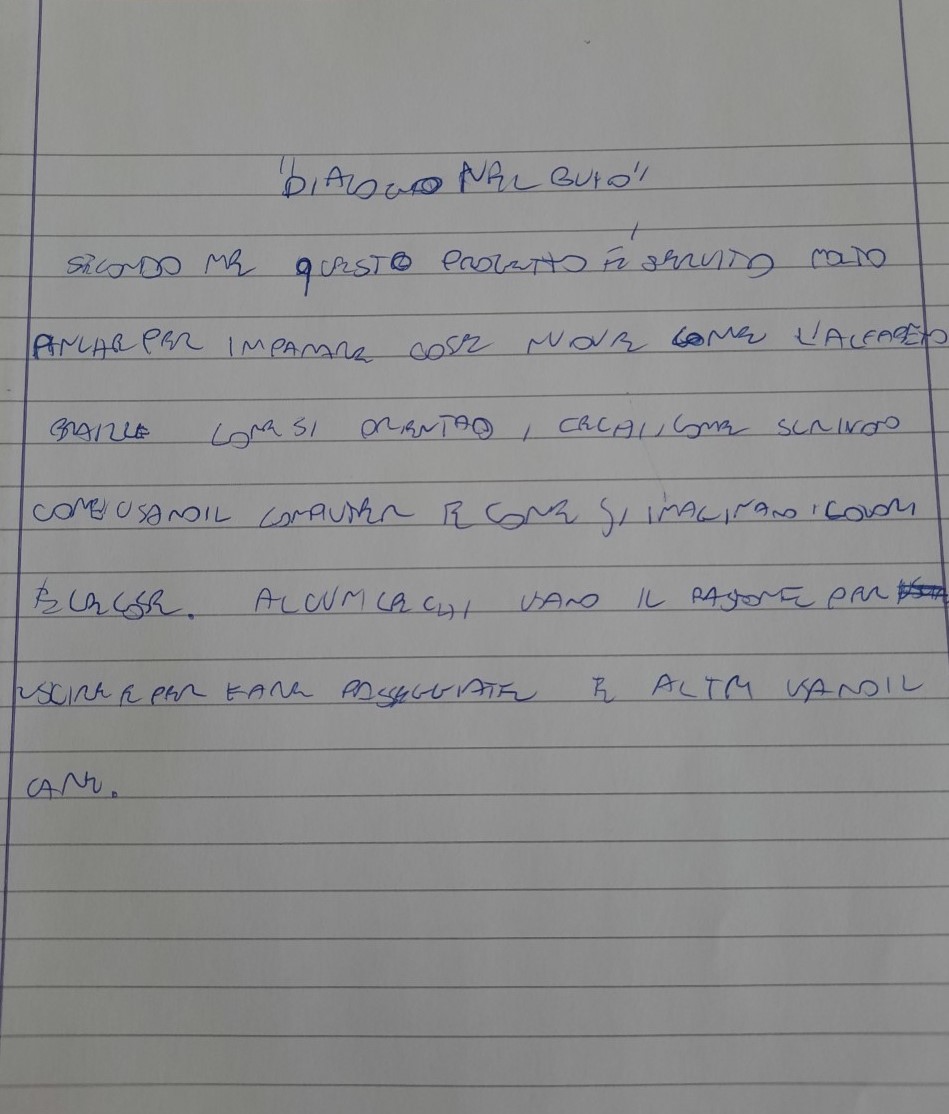 "DIALOGO NEL BUIO"
SECONDO ME QUESTO PROGETTO È SERVITO MOLTO
ANCHE PER IMPARARE COSE NUOVE COME L'ALFABETO
BRAILLE COME SI ORIENTAO, CECHI, COME SCRIVOO
COME USANO IL COMPUTER E COME SI IMAGINANO I COLORI
E LE COSE. ALCUNI CECHI USANO IL BASTONE PER
USCIRE E PER FARE PASSEGGIATE E ALTRI USANO IL
CANE.